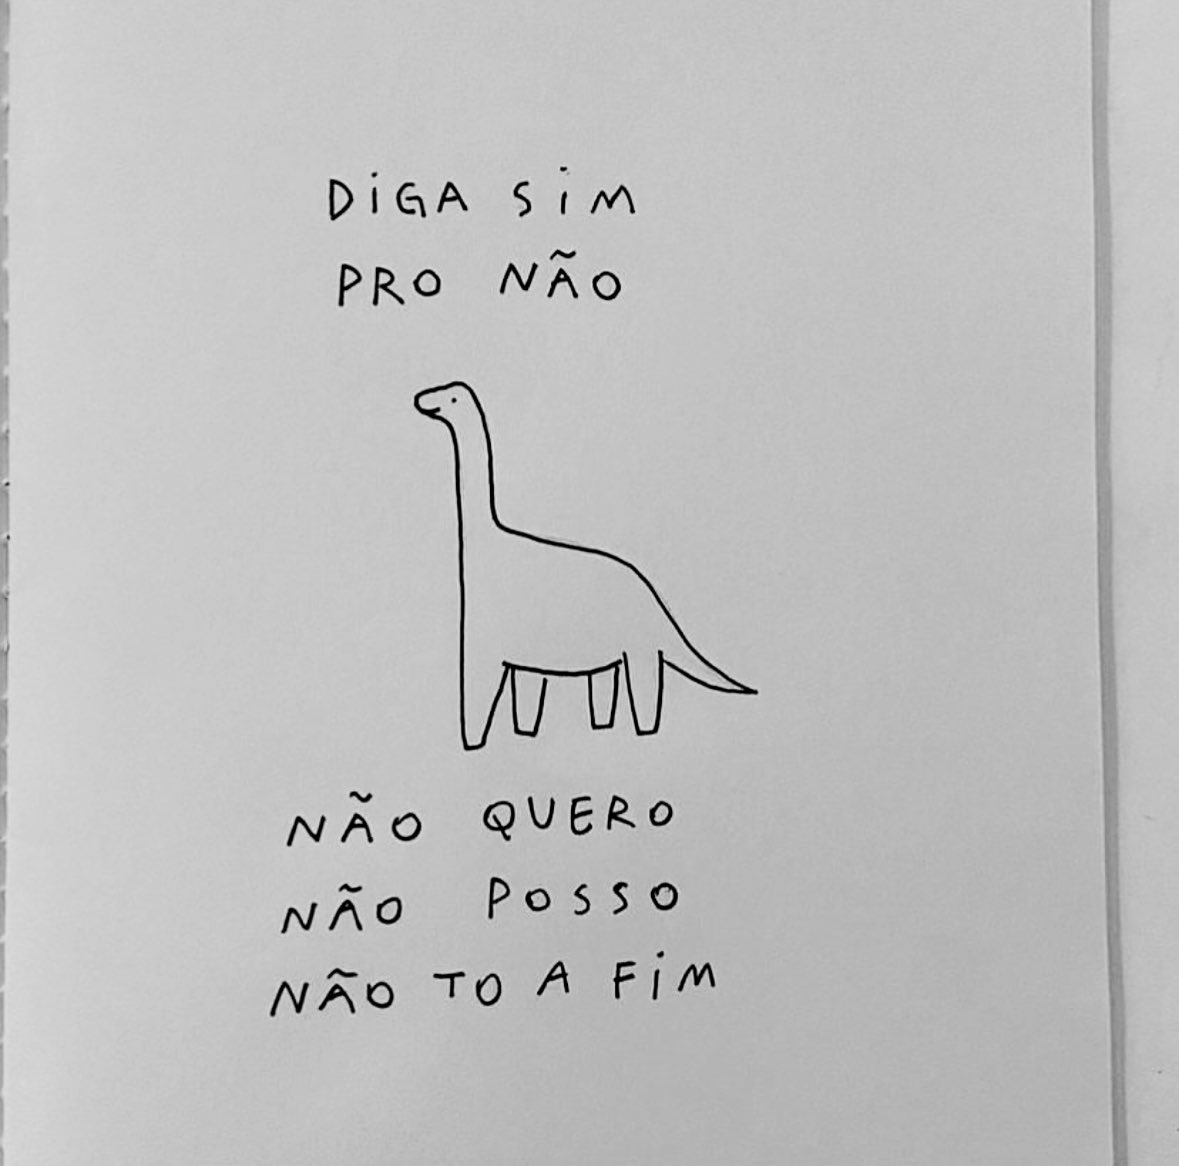 DiGA SiM
PRO NÃO
NÃO QUERO
NÃO POSSO
NÃO TO A FiM